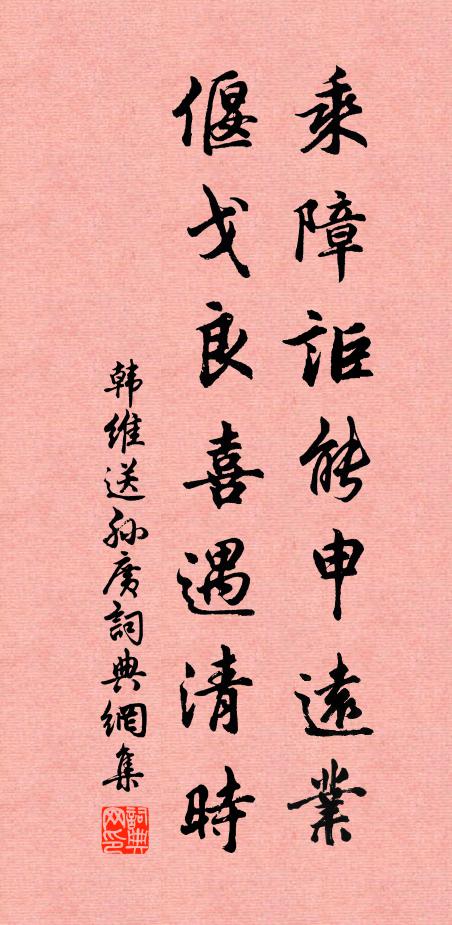 乘障詎能申遠業
偃戈良喜遇清時
韩维送孙廣詞典網集
詞典
网印